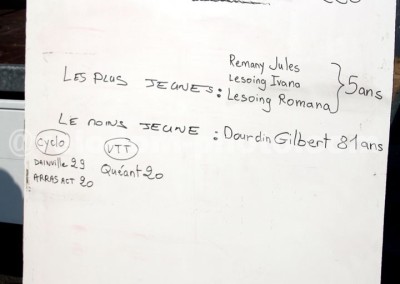 Remany Jules
Lesoing Ivana
LES PLUS JEUNES : Lesoing Romana } 5 ans
LE MOINS JEUNE : Dourdin Gilbert 81 ans
Cyclo VTT
DAINVILLE 29 Quéant 20
ARRAS ACT 20